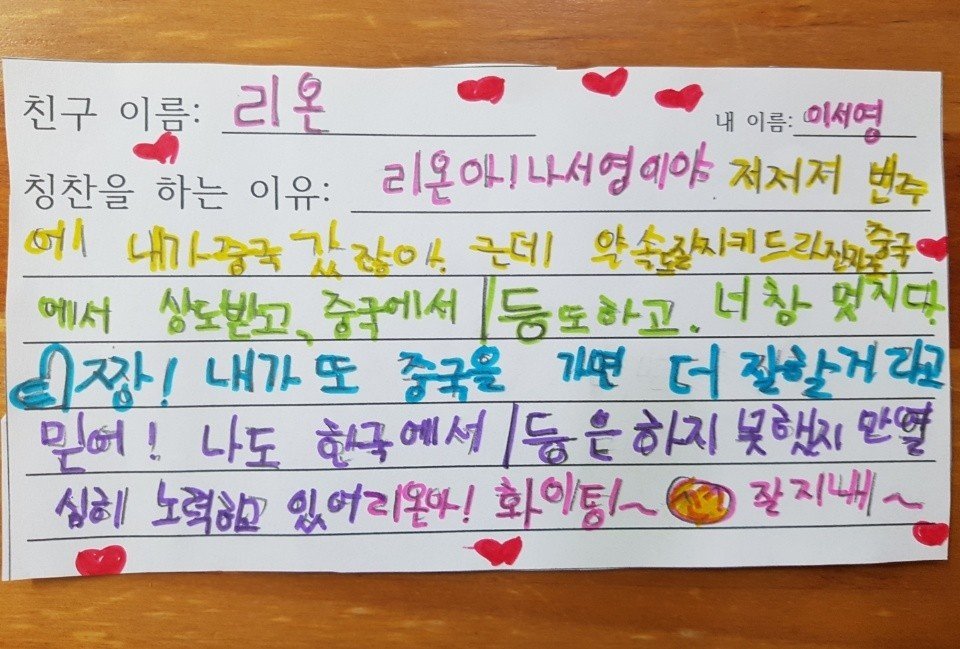 친구 이름: 리온
내 이름: 이서영
칭찬을 하는 이유: 리온아! 나서영이야 저저저 번주
에 내가중국 갔잖아. 근데 약속도잘지키드라 중국
에서 상도받고, 중국에서 1등도하고. 너 참 멋지다.
짱! 내가 또 중국을 가면 더 잘할거라고
믿어! 나도 한국에서 1등은하지 못했지만열
심히 노력하고 있어리온아! 화이팅~ 잘지내~